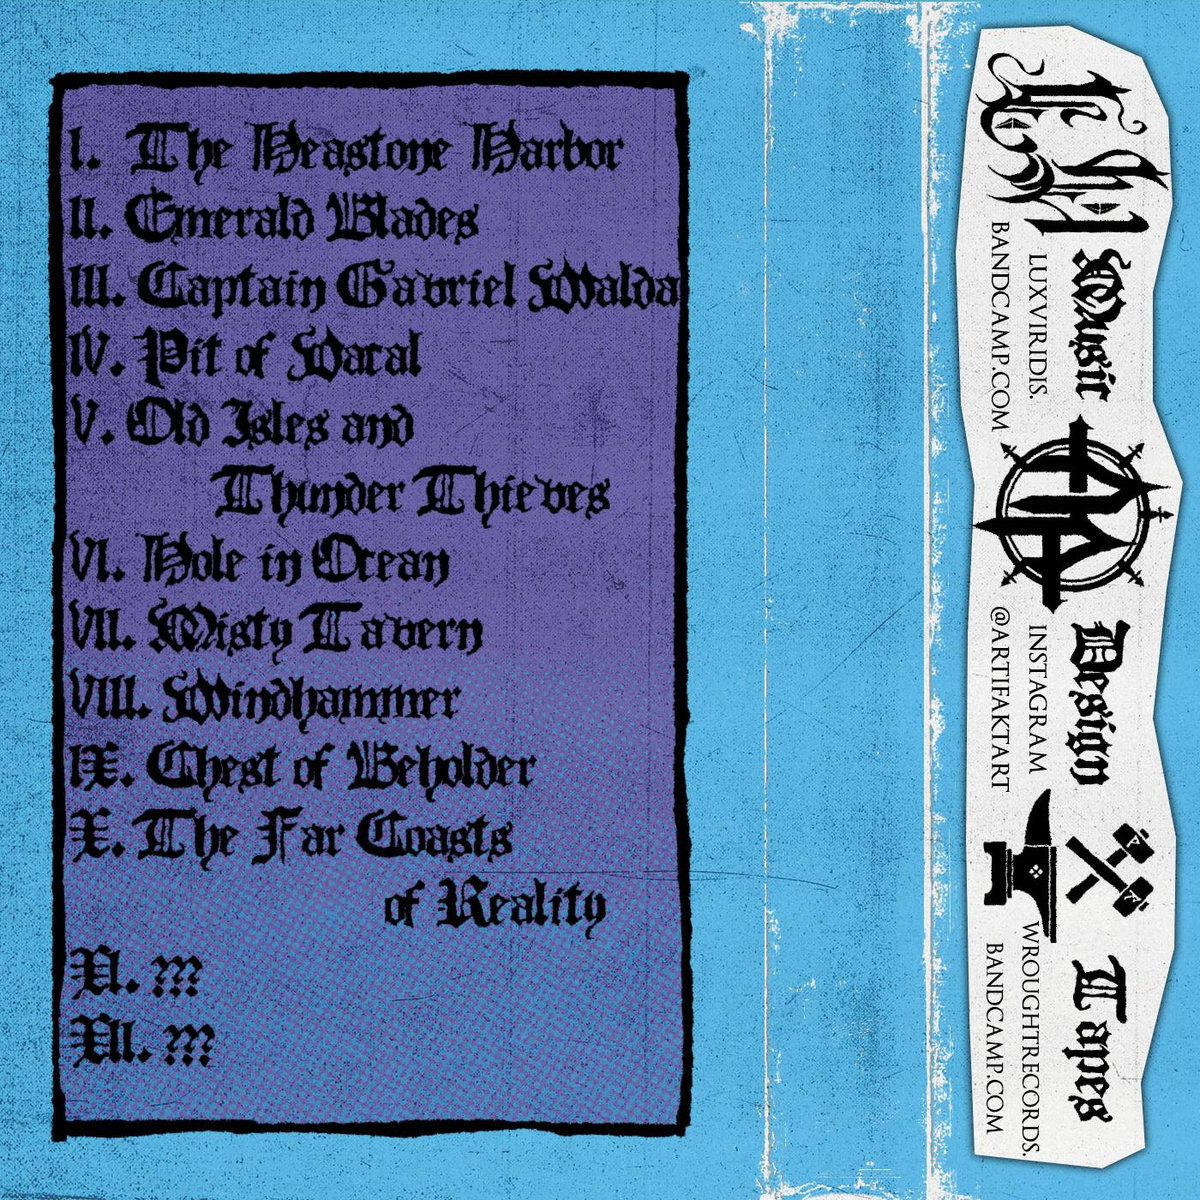 I. The Heastone Harbor
II. Emerald Blades
III. Captain Gabriel Walda
IV. Pit of Wacal
V. Old Isles and
Thunder Thieves
VI. Hole in Ocean
VII. Misty Tavern
VIII. Windhammer
IX. Chest of Beholder
X. The Far Coasts
of Reality
XI. ???
XII. ???
Music
LUXVIRIDIS.
BANDCAMP.COM
Design
INSTAGRAM
@ARTIFAKTART
Tapes
WROUGHTRECORDS.
BANDCAMP.COM